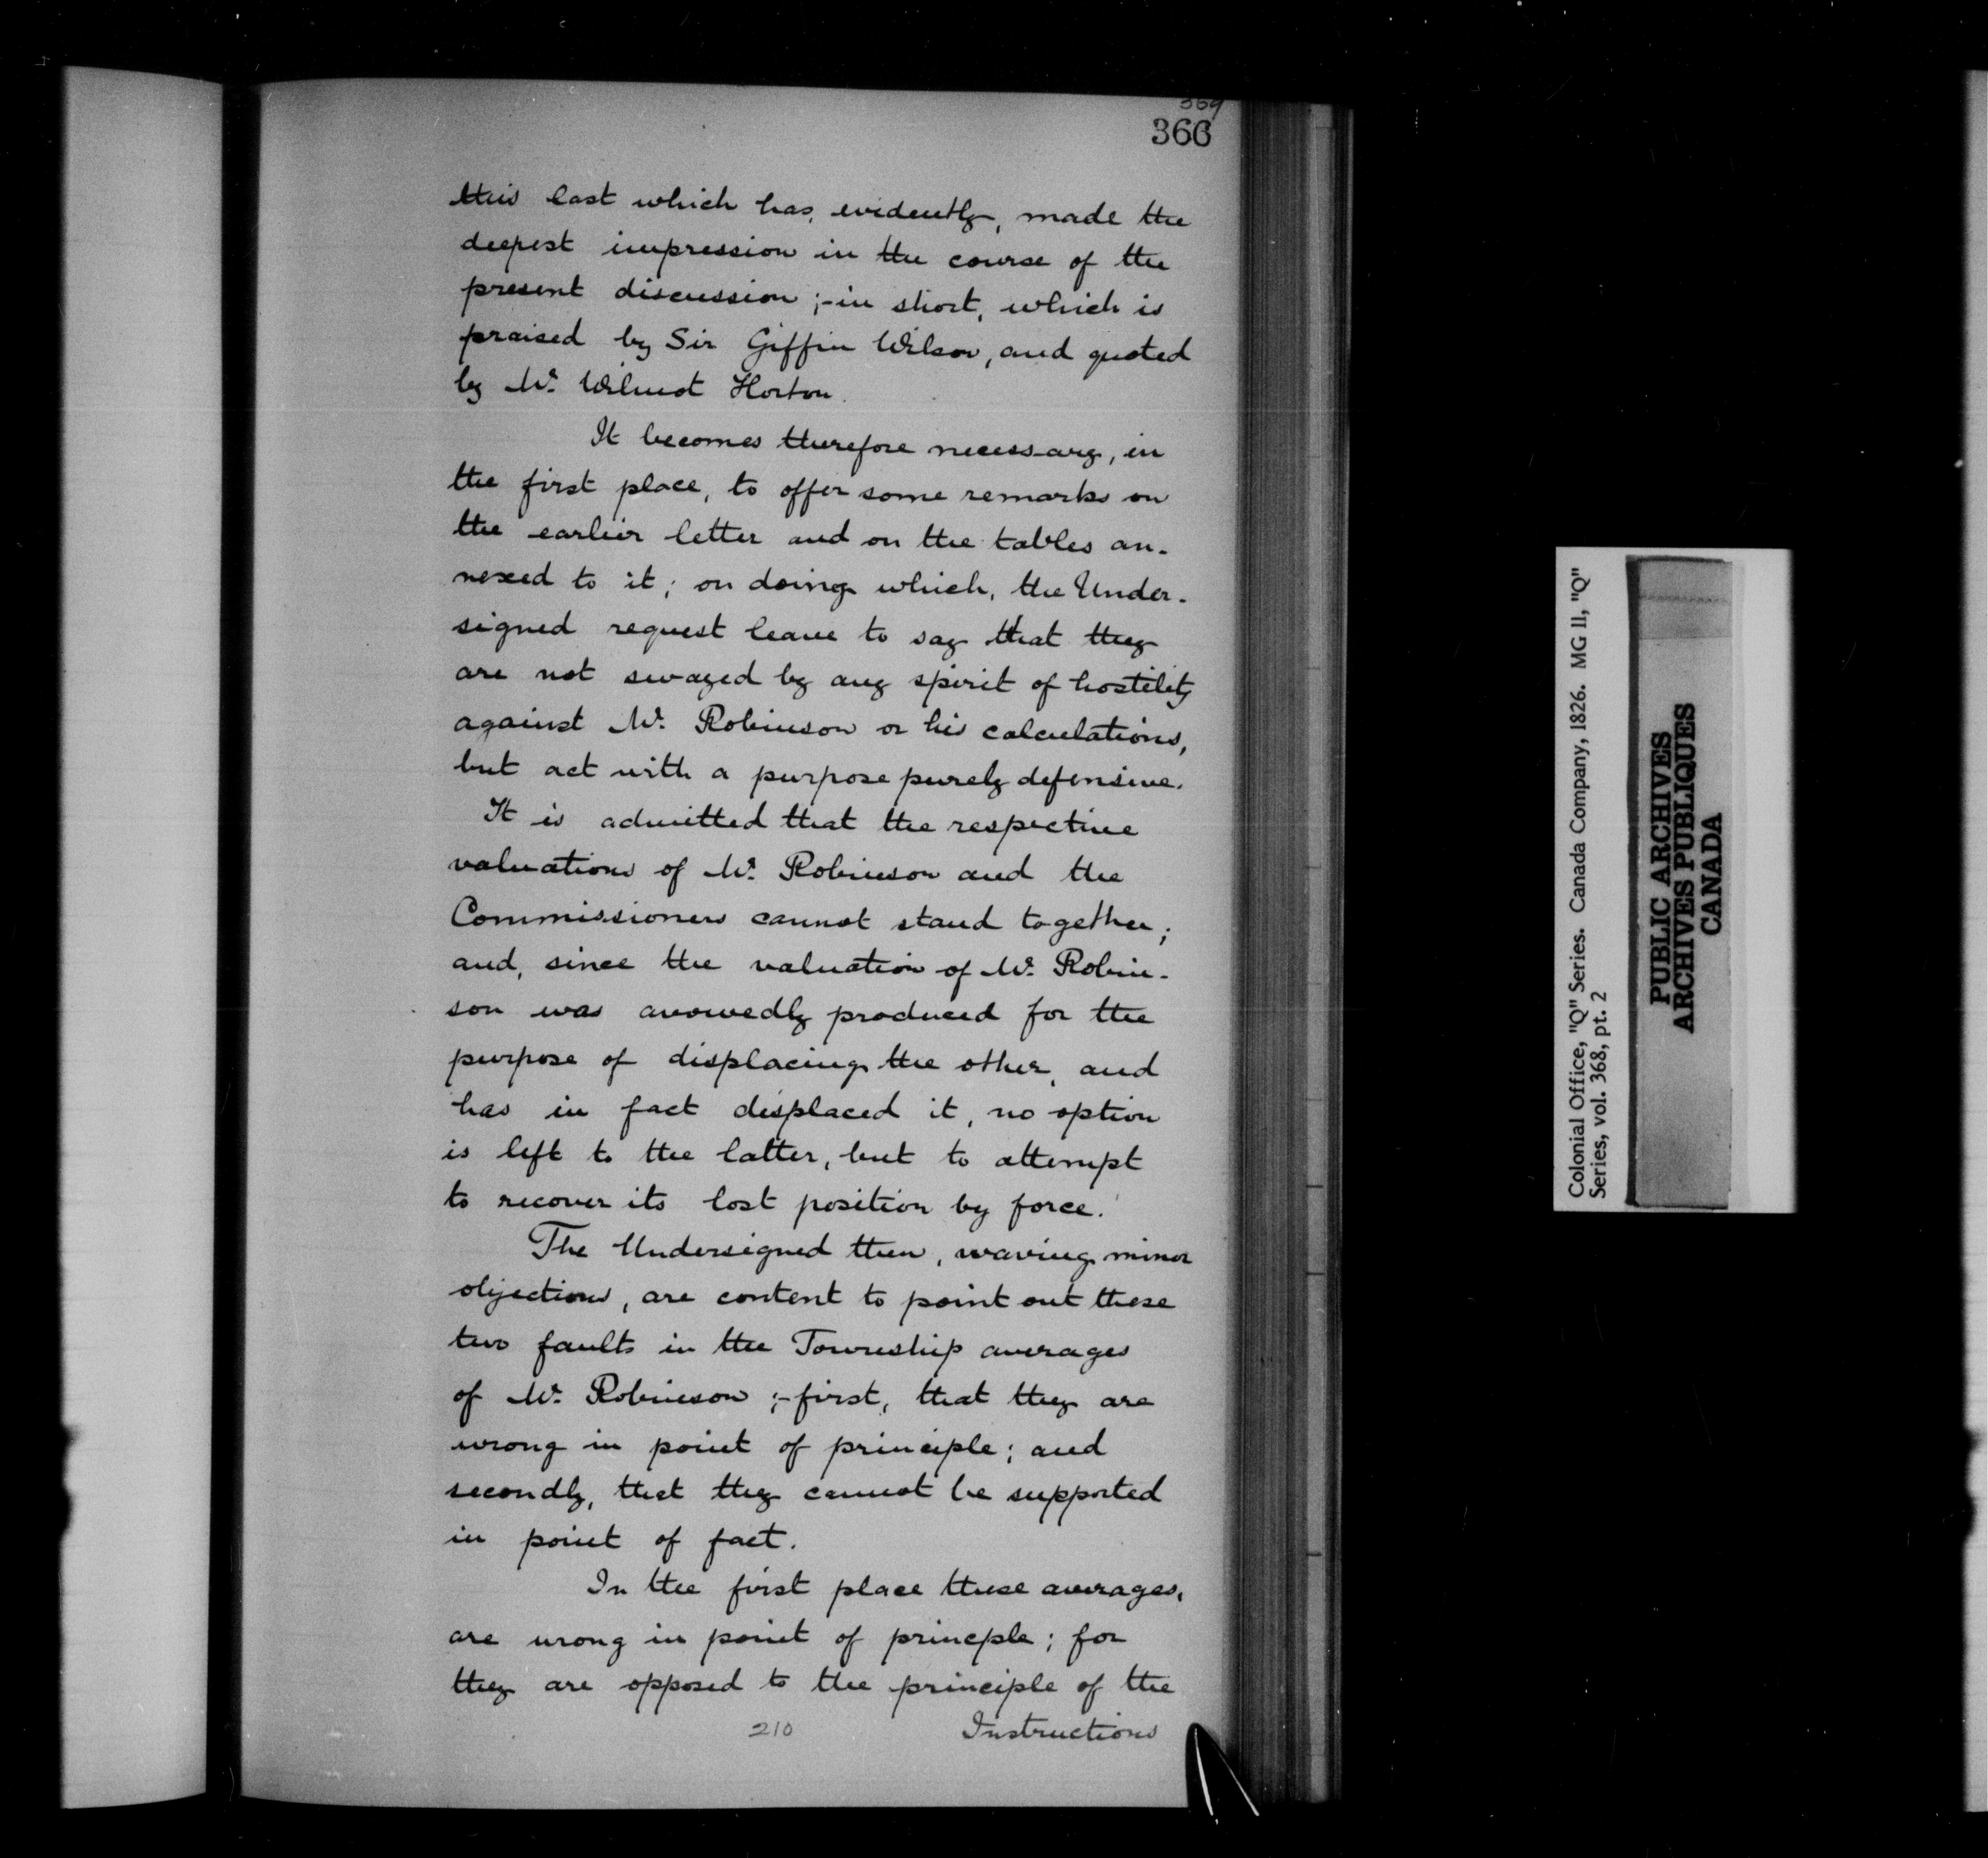 366
this last which has, evidently, made the
deepest impression in the course of the
present discussion ;- in short, which is
praised by Sir Giffin Wilson, and quoted
by Mr. Wilmot Horton.
It becomes therefore necessary, in
the first place, to offer some remarks on
the earlier letter and on the tables an-
nexed to it; on doing which, the Under-
signed request leave to say that they
are not swayed by any spirit of hostility
against Mr. Robinson or his calculations,
but act with a purpose purely defensive.
It is admitted that the respective
valuations of Mr. Robinson and the
Commissioners cannot stand together;
and, since the valuation of Mr. Robin-
son was avowedly produced for the
purpose of displacing the other, and
has in fact displaced it, no option
is left to the latter, but to attempt
to recover its lost position by force.
The Undersigned then, waving minor
objections, are content to point out these
two faults in the Township averages
of Mr. Robinson ;- first, that they are
wrong in point of principle; and
secondly, that they cannot be supported
in point of fact.
In the first place these averages,
are wrong in point of principle; for
they are opposed to the principle of the
210 Instructions
Colonial Office, "Q" Series. Canada Company, 1826. MG 11, "Q"
Series, vol. 368, pt. 2
PUBLIC ARCHIVES
ARCHIVES PUBLIQUES
CANADA